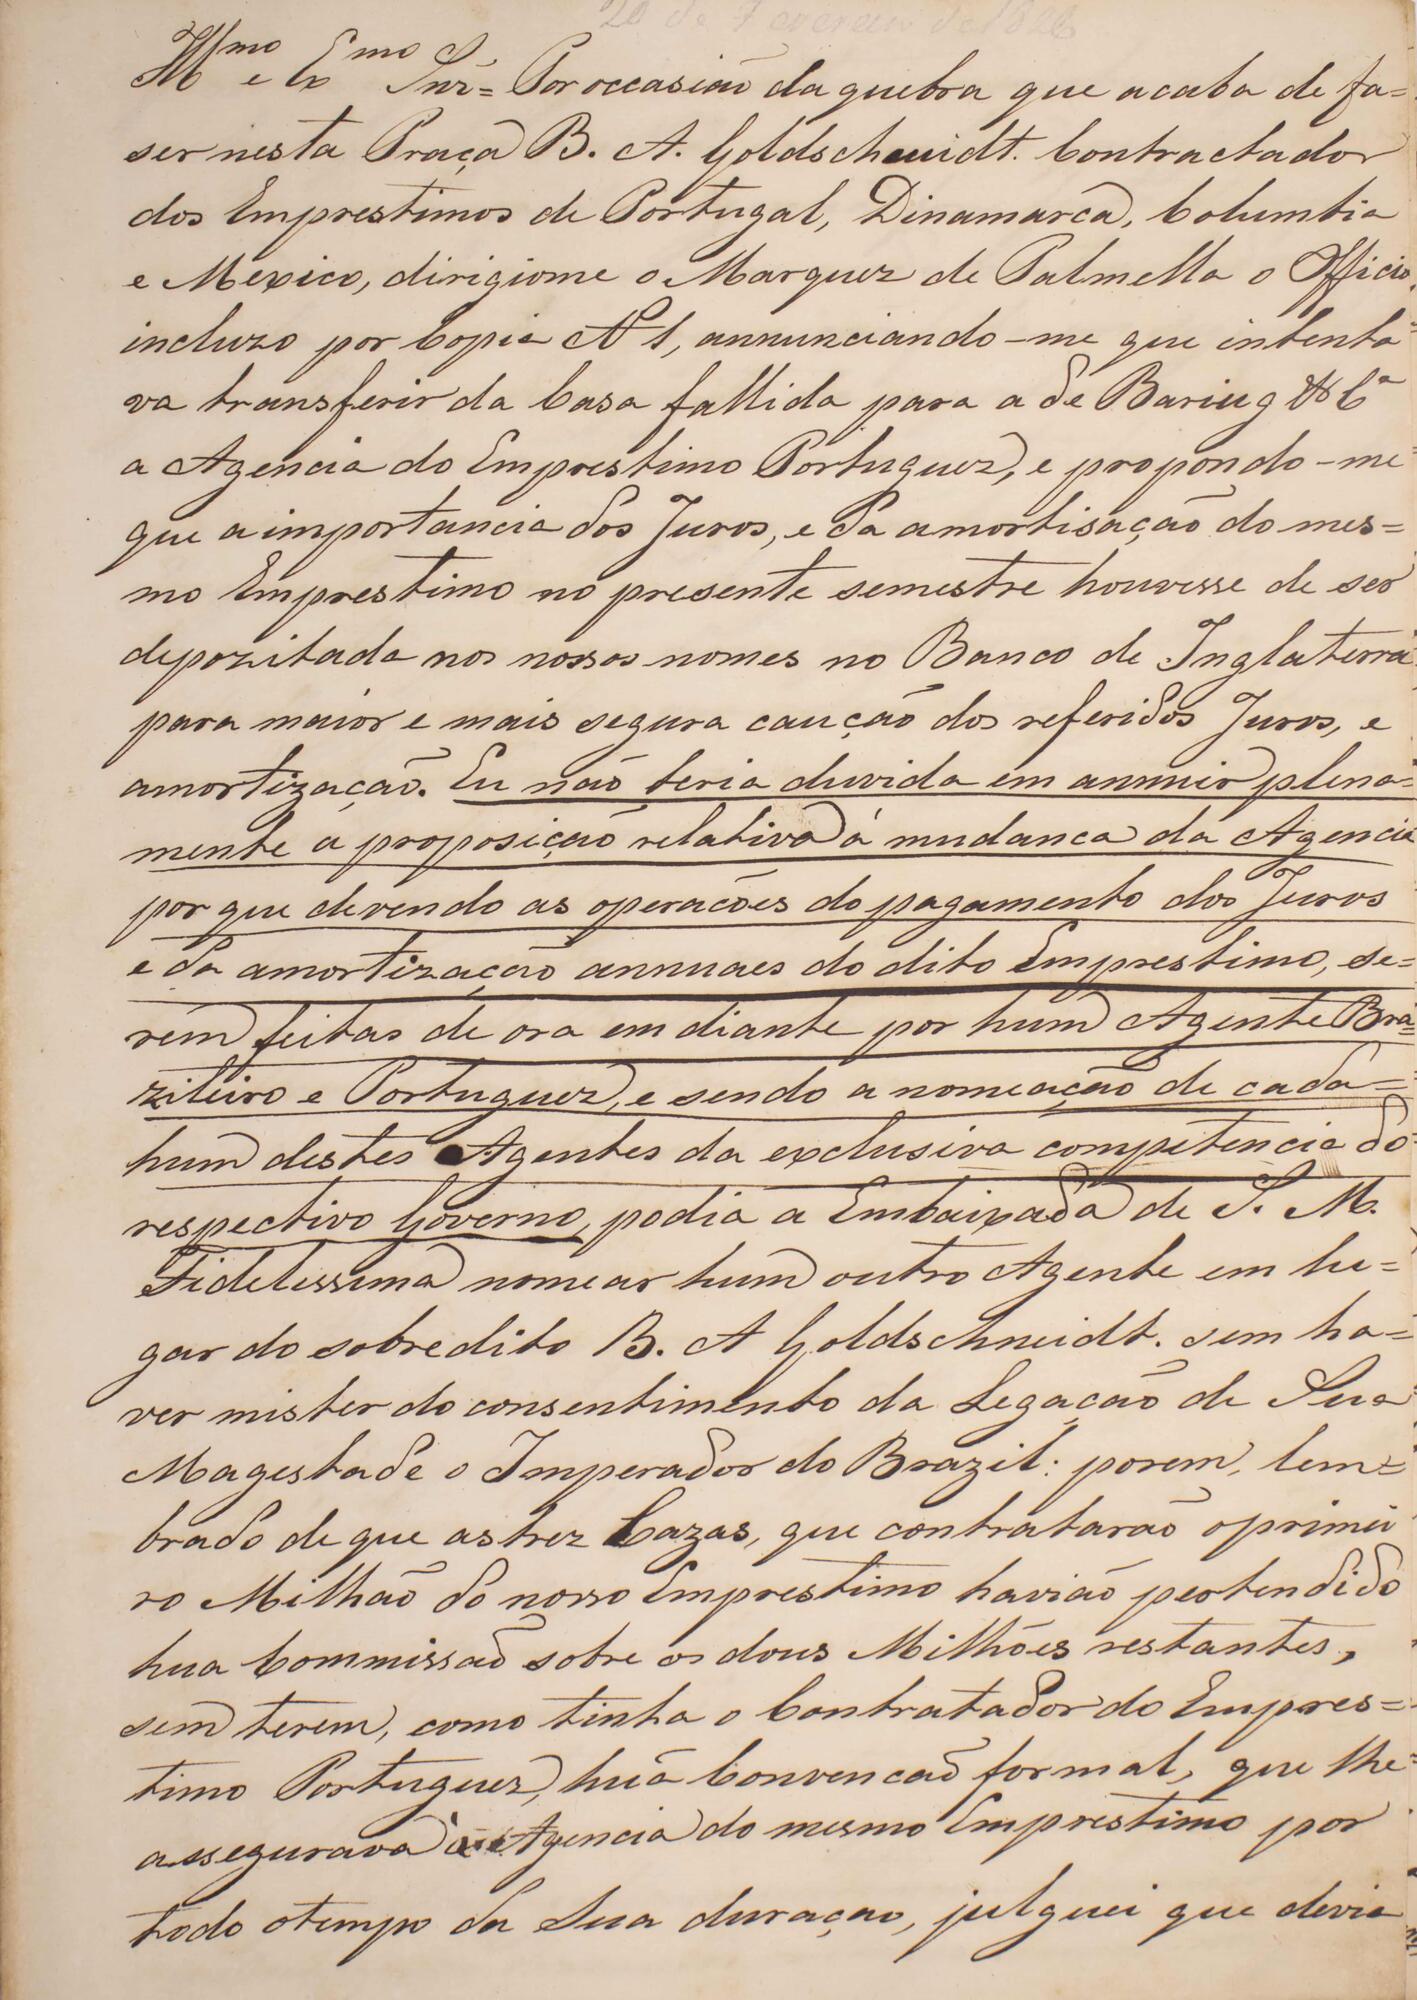 20 de Fevereiro de 1826
Illmo e Exmo Snr = Por occasião da quebra que acaba de fa=
ser nesta Praça B. A. Goldschmidt. Contractador
dos Emprestimos de Portugal, Dinamarca, Columbia
e Mexico, dirigiome o Marquez de Palmella o Officio,
incluzo por Copia N 1, annunciando-me que intenta=
va transferir da Casa fallida para a de Baring & Cª
a Agencia do Emprestimo Portuguez, e propondo-me=
que a importancia dos Juros, e da amortisação do mes=
mo Emprestimo no presente semestre houvesse de ser
depozitada nos nossos nomes no Banco de Inglaterra
para maior e mais segura caução dos referidos Juros, e
amortização. Eu não teria duvida em annuir plena=
mente a proposição relativa á mudanca da Agencia
por que devendo as operacões do pagamento dos Juros
e da amortização annuaes do dito Emprestimo, se=
rem feitas de ora em diante por hum Agente Bra=
zileiro e Portuguez, e sendo a nomeação de cada=
hum destes Agentes da exclusiva competencia do
respectivo Governo, podia a Embaixada de S. M.
Fidelissima nomear hum outro Agente em lu=
gar do sobredito B. A Goldschneidt. sem ha=
ver mister do consentimento da Legação de Sua
Magestade o Imperador do Brazil: porem, lem=
brado de que as trez Cazas, que contratarão o primei
ro Milhão do nosso Emprestimo havião pertendido
hua Commissão sobre os dous Milhões restantes,
sem terem, como tinha o Contratador do Empres=
timo Portuguez, huã Convencão formal, que lhe=
assegurava a Agencia do mesmo Emprestimo por
todo o tempo da Sua duração, julguei que devia